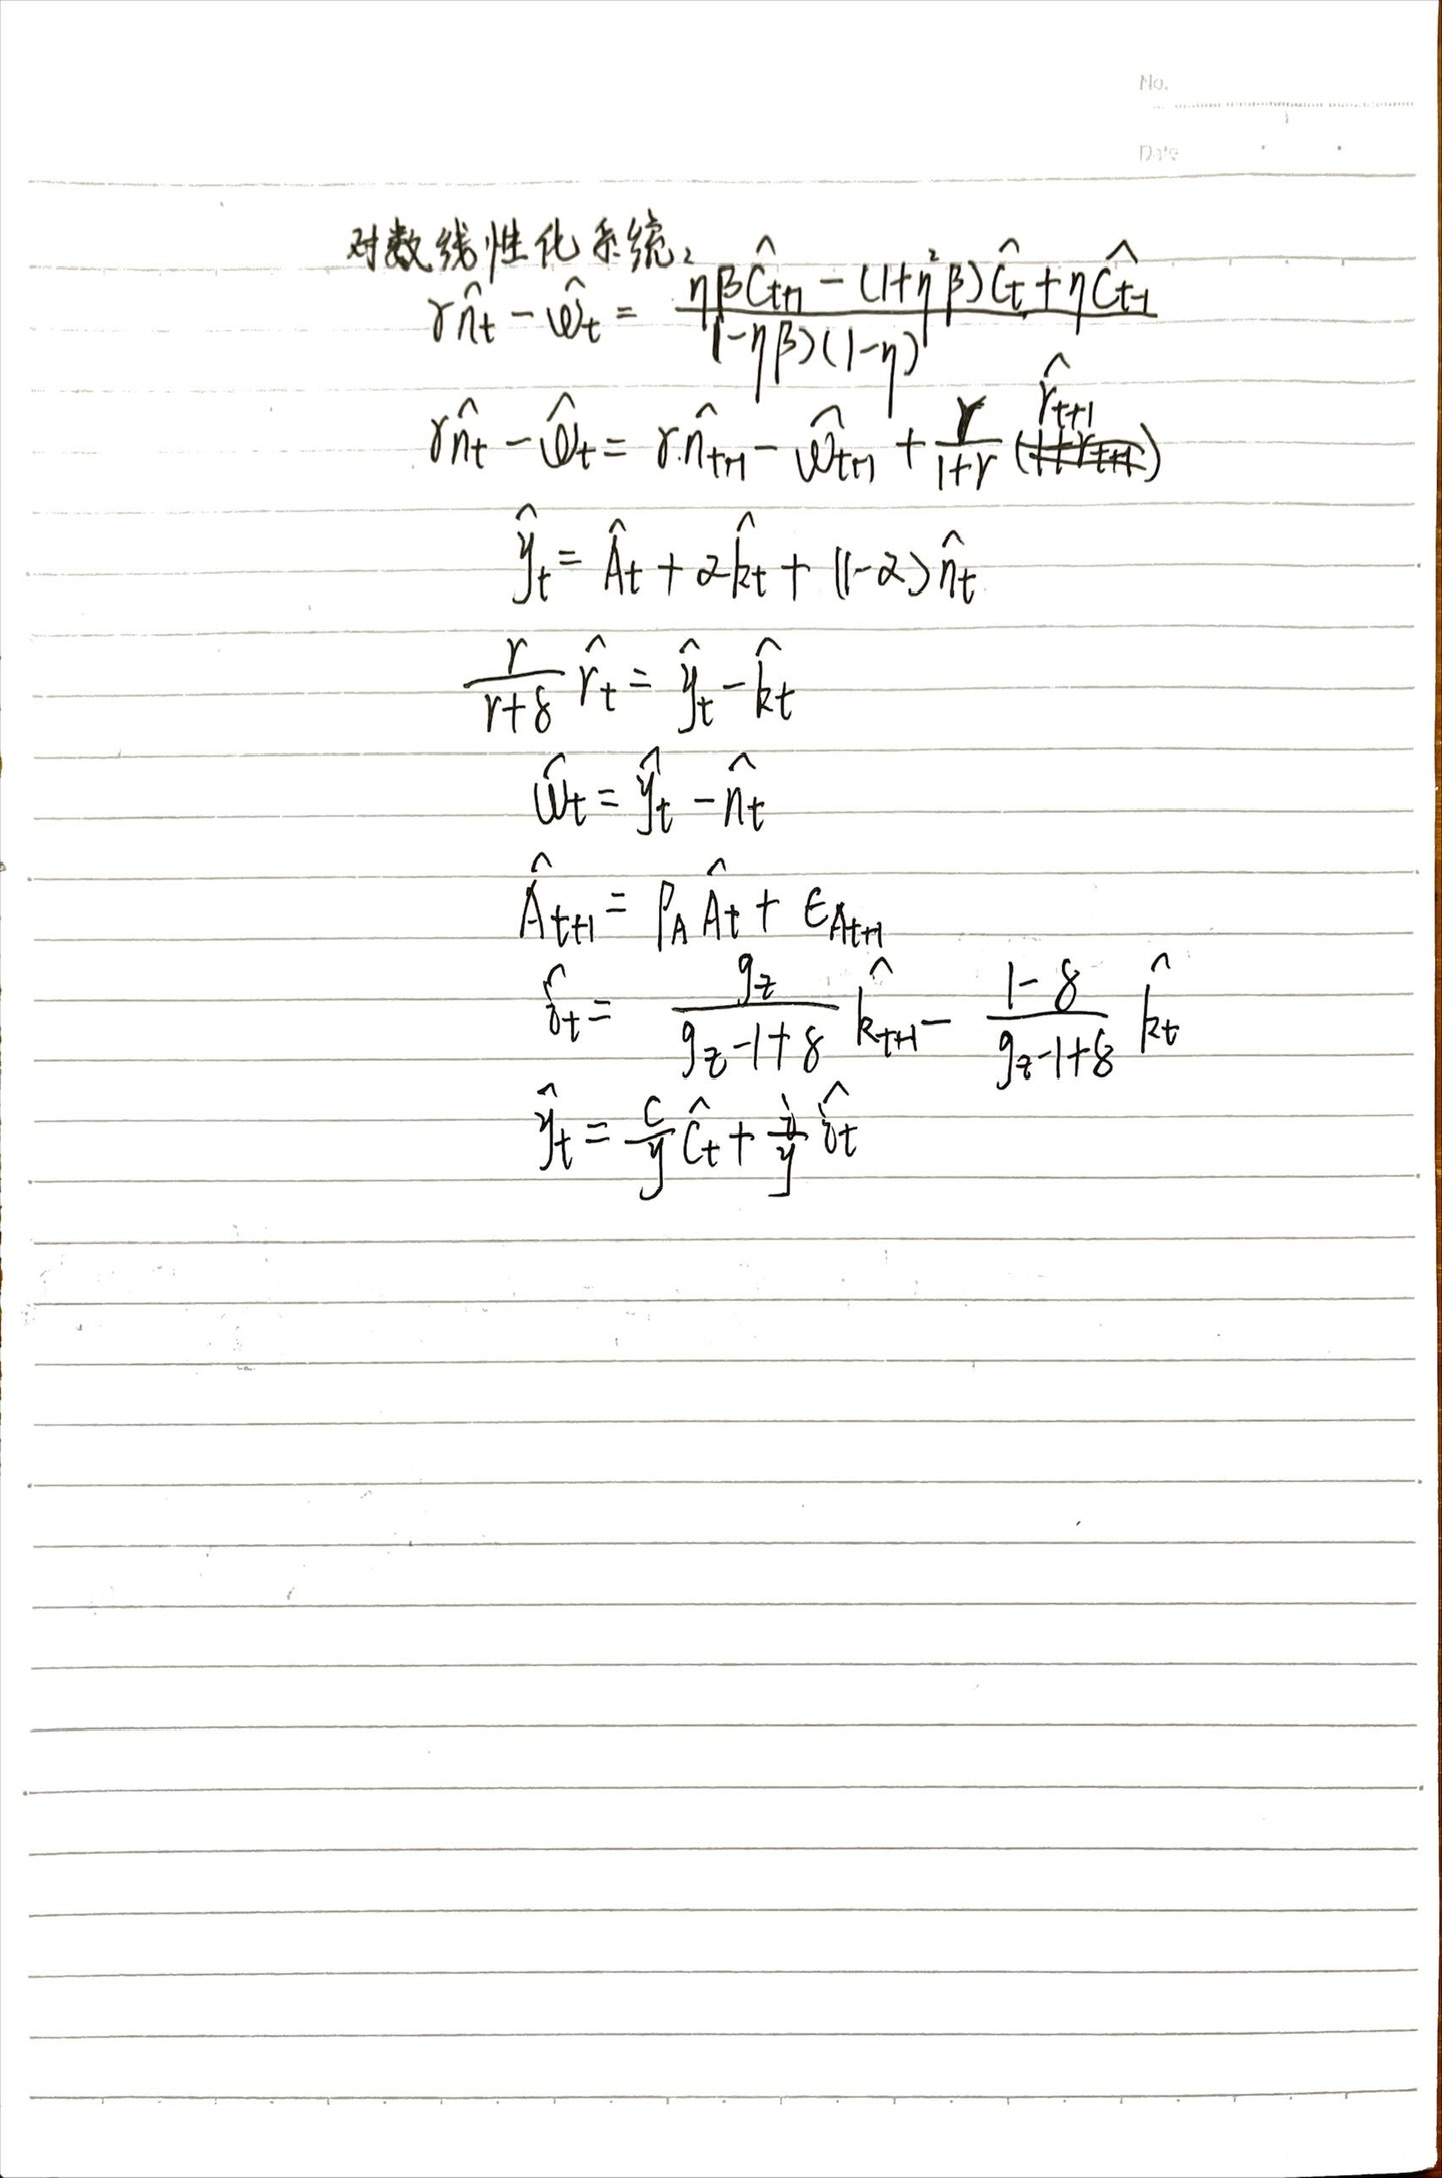 No.
Date
对数线性化系统:
γn̂t - ω̂t = (ηβĈt+1 - (1+η²β)Ĉt + ηĈt-1) / (1-ηβ)(1-η)
γn̂t - ω̂t = γn̂t+1 - ω̂t+1 + r/(1+r) (r̂t+1)
ŷt = Ât + αk̂t + (1-α)n̂t
r/(r+δ) r̂t = ŷt - k̂t
ω̂t = ŷt - n̂t
Ât+1 = ρA Ât + ϵAt+1
ît = gz/(gz-1+δ) k̂t+1 - (1-δ)/(gz-1+δ) k̂t
ŷt = c/y Ĉt + i/y ît